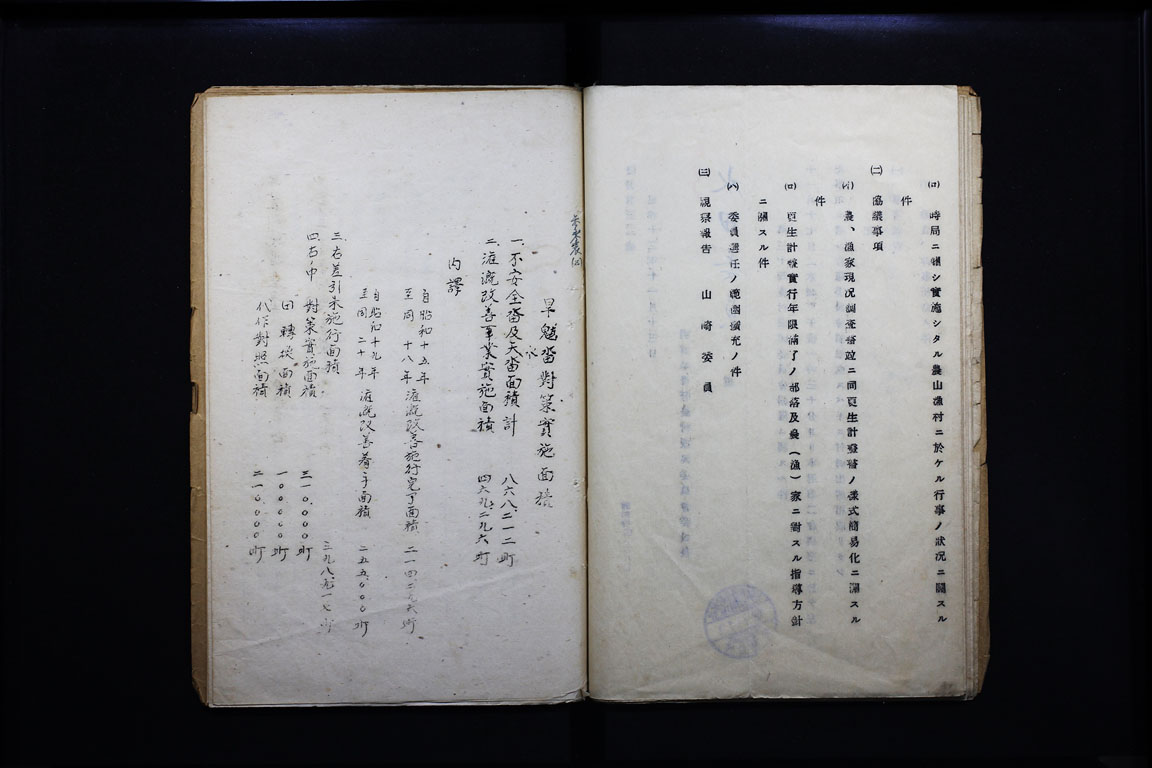 (ロ) 時局ニ鑑シ實施シタル農山漁村ニ於ケル行事ノ狀況ニ關スル
件
(二) 協議事項
(イ) 農、漁家現況調査書竝ニ同更生計畫書ノ樣式簡易化ニ關スル
件
(ロ) 更生計畫實行年限滿了ノ部落及農(漁)家ニ對スル指導方針
ニ關スル件
(ハ) 委員選任ノ範圍擴充ノ件
(三) 視察報告 山崎委員
旱魃畓對策實施面積
一、不安全畓及天水畓面積計 八六八、二一二町
二、灌漑改善事業實施面積 四六九、二九六町
內譯
自昭和十五年
至同十八年 灌漑改善施行完了面積 二一四、二九六町
自昭和十九年
至同二十年 灌漑改善着手面積 二五五、〇〇〇町
三、右差引未施行面積 三九八、九一七町
四、右ノ中 對策實施面積 三一〇、〇〇〇町
田 轉換面積 一〇〇、〇〇〇町
代作對照面積 二一〇、〇〇〇町